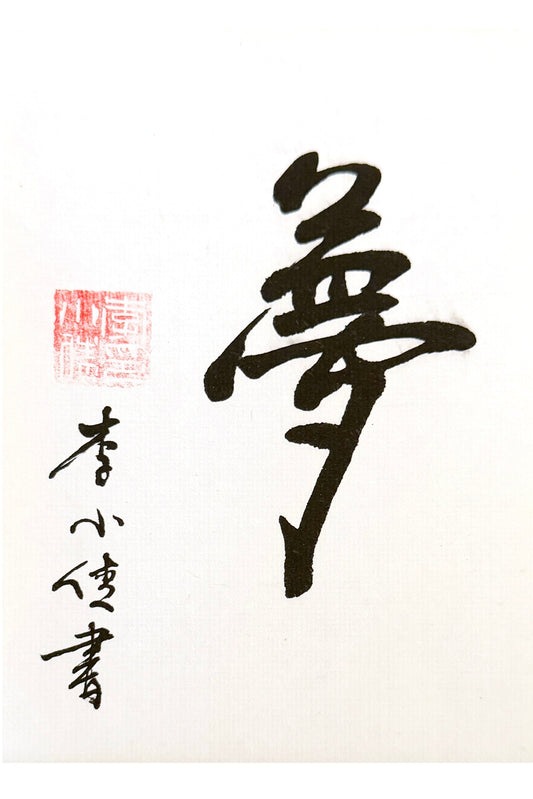 夢
李小書